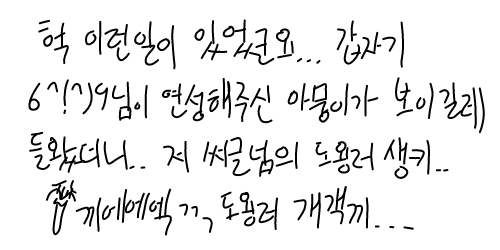 헉 이런일이 있었군요... 갑자기
6^!^)9님이 연성해주신 아뭉이가 보이길레
들왔더니.. 저 씨글넘의 도용러 생키..
끼에에엑ㄱㄱ 도용러 개객끼...